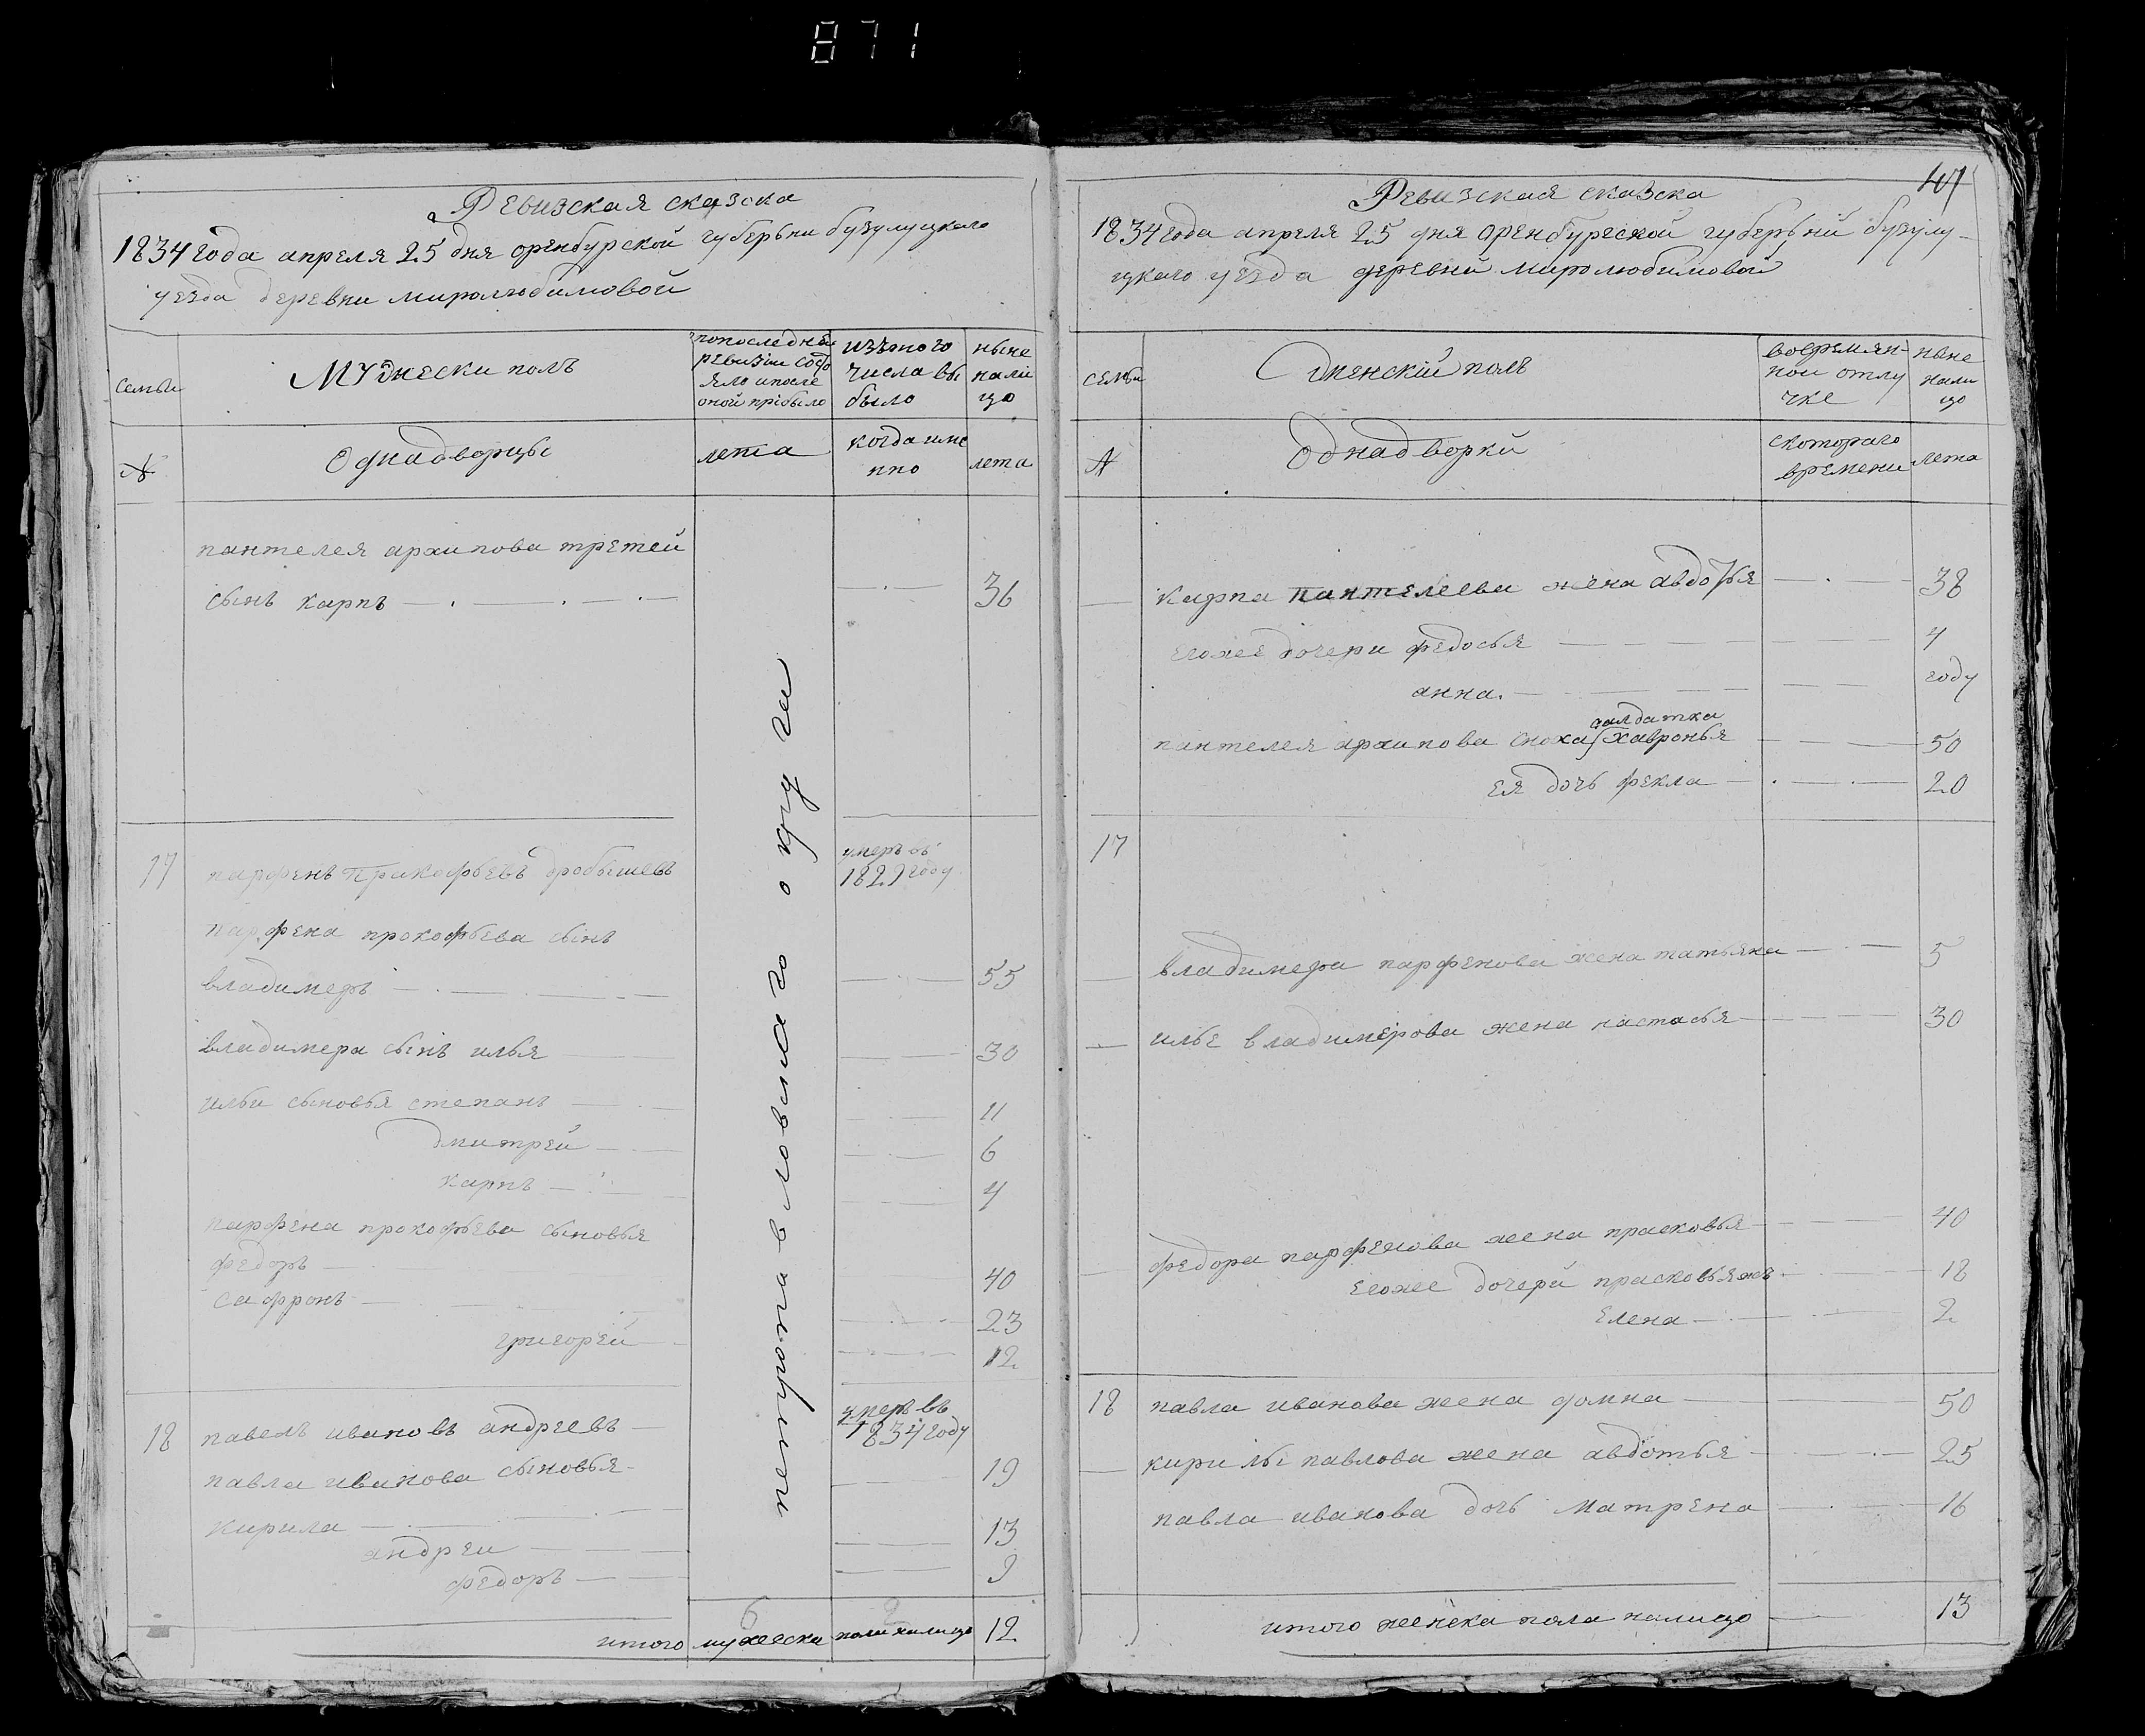 871
Ревизская сказска
1834 года апреля 25 дня оренбурской губерьни бузулуцкаго
уезда деревни миролюбимовой
семьи
Мужески полъ
попоследней
ревизіи состо
яло ипосле
оной прібыло
изъоного
числа вы
было
ныне
налі
цо
№
Однадворцы
лета
когда име
нно
лета
пантелея архипова третей
сынъ карпъ
36
17
парфенъ прикофьевъ дробышевъ
умеръ въ
1829 году
парфена прокофьева сынъ
владимеръ
55
владимера сынъ илья
30
ильи сыновья степанъ
11
дмитрей
6
карпъ
4
парфена прокофьева сыновья
федоръ
40
сафронъ
23
григорей
12
18
павелъ ивановъ андреевъ
умеръ въ
1834 году
павла иванова сыновья
19
кирила
13
андреи
9
федоръ
6
2
итого мужеска пола налицо 12
47
Ревизская сказска
1834 года апреля 25 дня оренбургской губерьній бузулу-
цкаго уезда деревни миролюбимовой
семьи
Женскій полъ
вовремян-
ной отлу
чке
ныне
нали
цо
№
Однадворки
скотораго
времени
лета
карпа пантелеева жена авдотья
38
егоже дочери федосья
4
анна.
году
салдатка
пантелея архипова сноха хавронья
50
ея дочь фекла
20
17
владимера парфенова жена татьяна
5
илье владимерова жена настасья
30
федора парфенова жена прасковья
40
егоже дочерй прасковьяжъ
18
елена
2
18
павла иванова жена домна
50
кирилы павлова жена авдотья
25
павла иванова дочь матрена
16
итого женска пола налицо
13